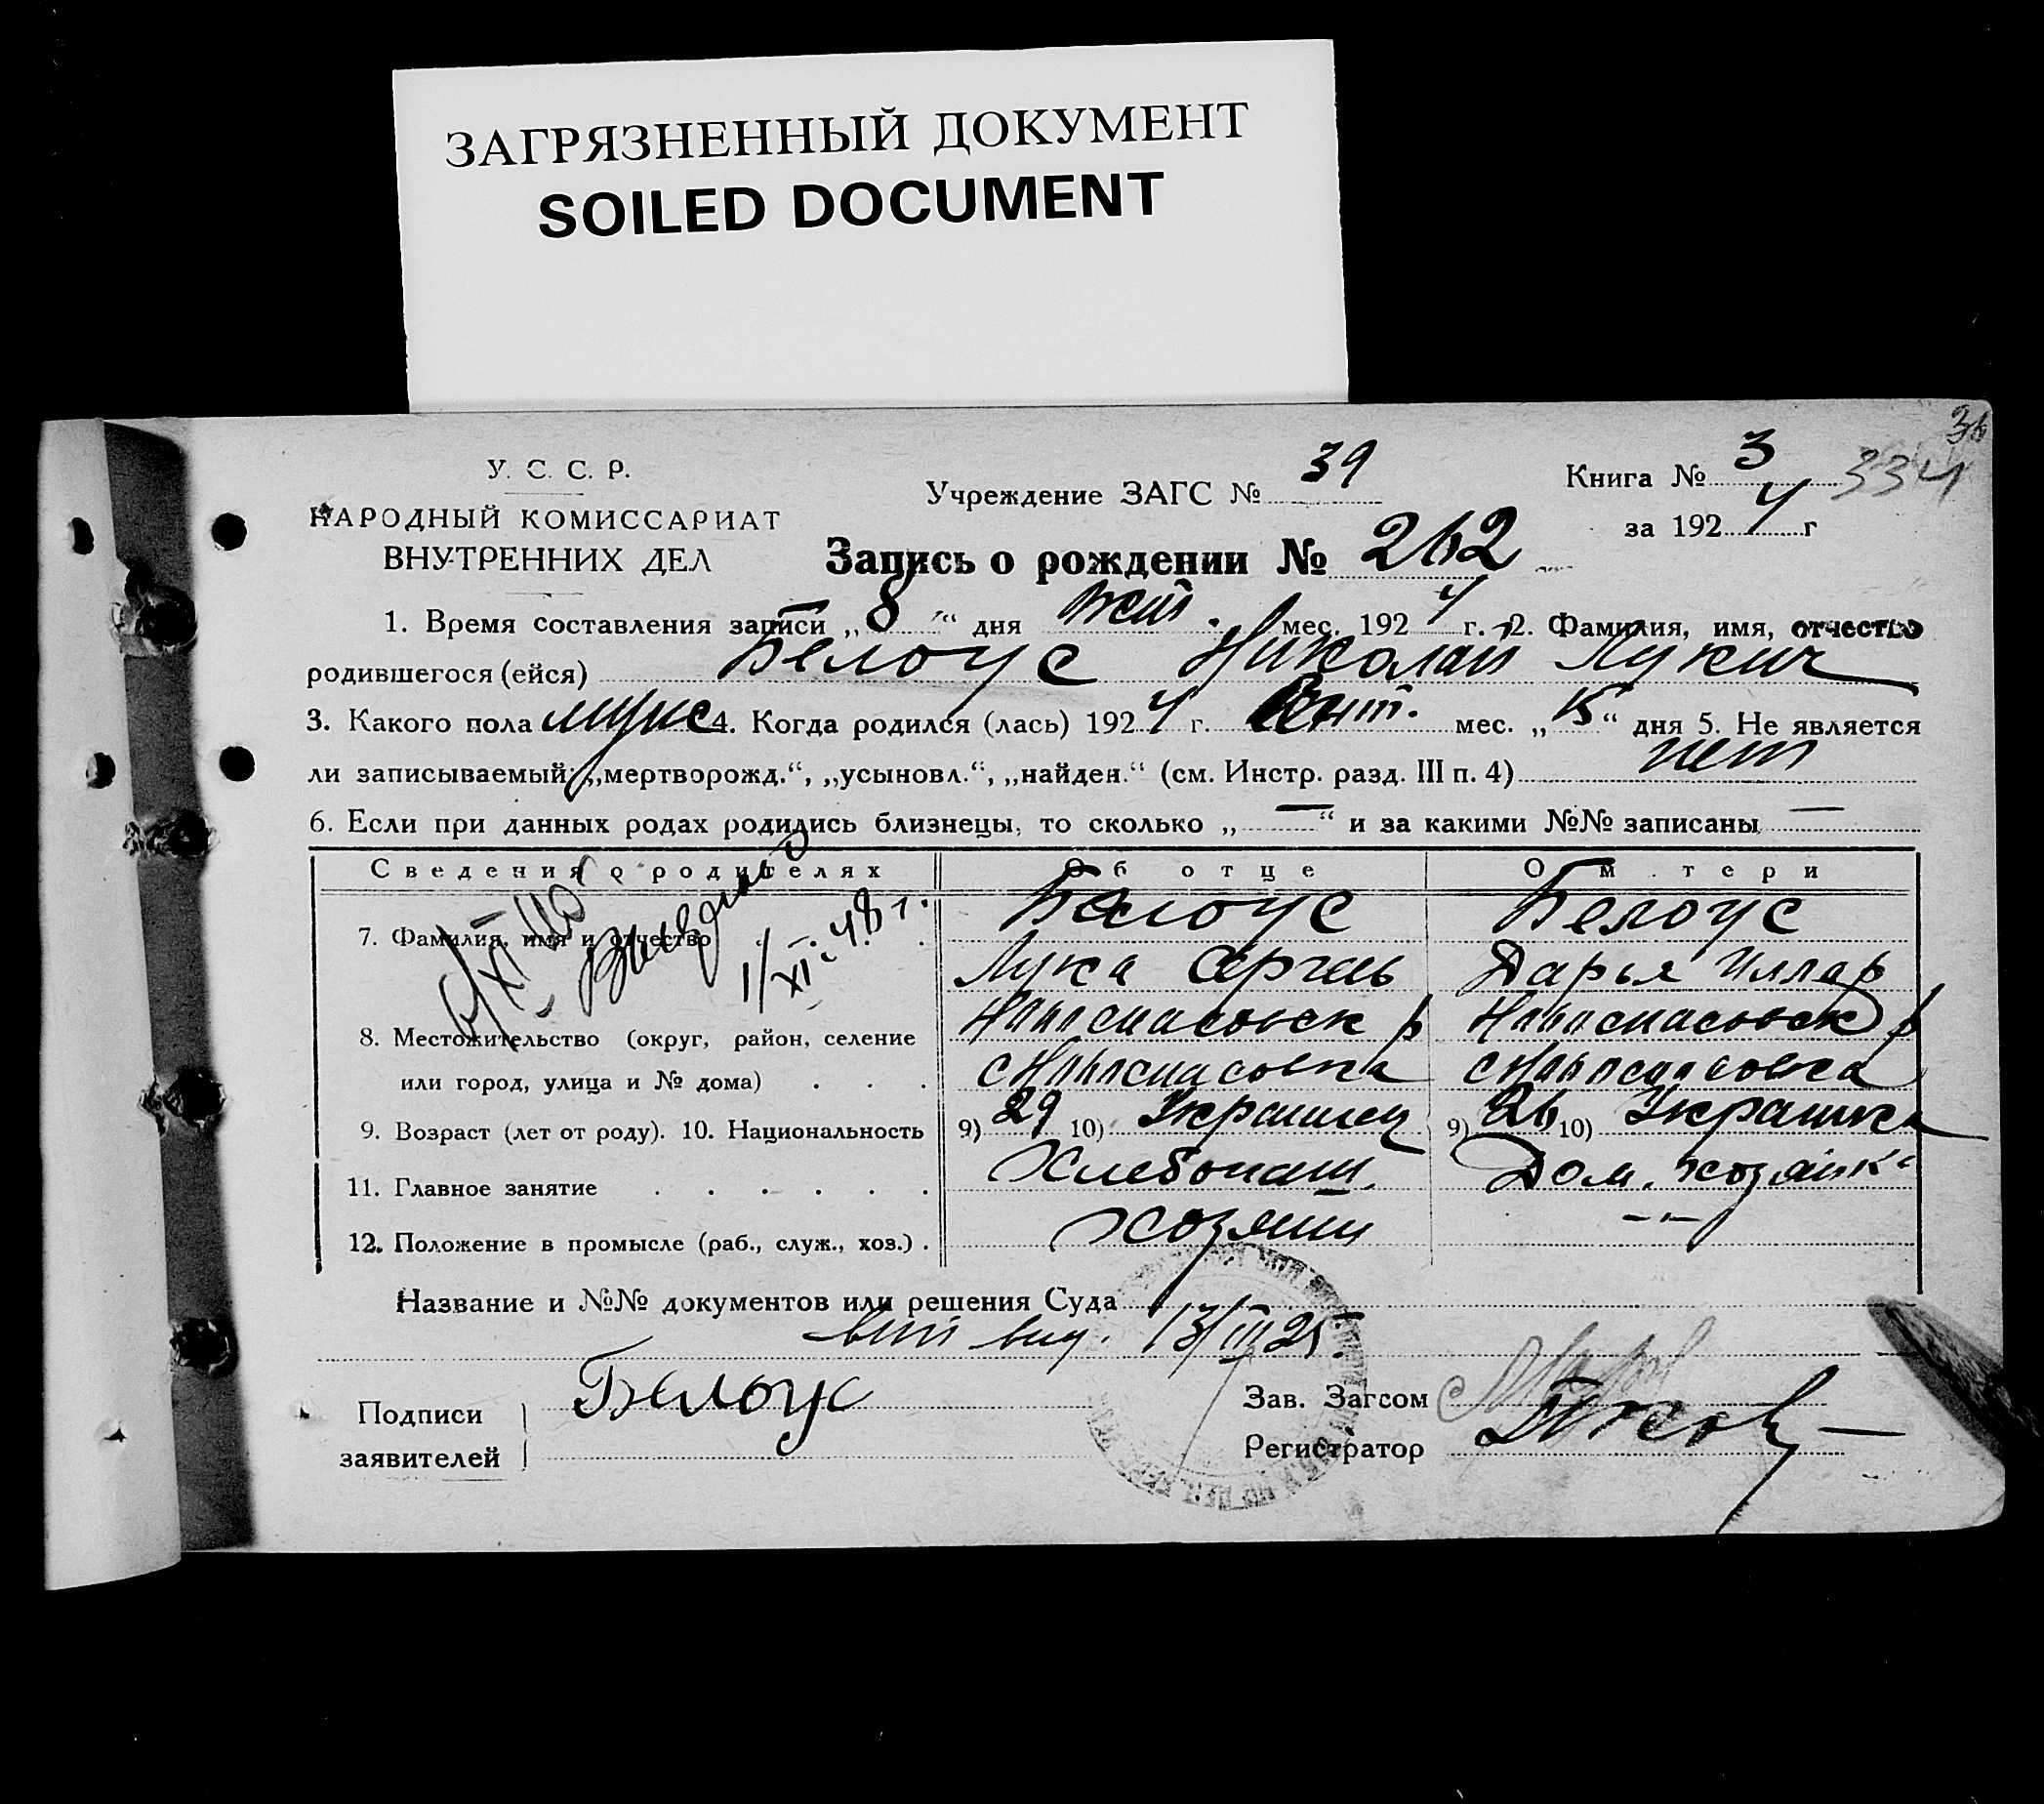 ЗАГРЯЗНЕННЫЙ ДОКУМЕНТ
SOILED DOCUMENT
У. С. С. Р.
НАРОДНЫЙ КОМИССАРИАТ
ВНУТРЕННИХ ДЕЛ
Учреждение ЗАГС № 39
Книга № 3
334
за 1924 г
Запись о рождении № 262
1. Время составления записи „8“ дня окт. мес. 1924 г. 2. Фамилия, имя, отчество
родившегося (ейся) Белоус Николай Лукич
3. Какого пола муж 4. Когда родился (лась) 1924 г. Сент. мес. „15“ дня 5. Не является
ли записываемый: „мертворожд.“, „усыновл.“, „найден.“ (см. Инстр. разд. III п. 4) нет
6. Если при данных родах родились близнецы, то сколько „—“ и за какими №№ записаны —
Сведения о родителях Об отце О м тери
7. Фамилия, имя и отчество Белоус Белоус
Лука Сергеев Дарья Иллар
8. Местожительство (округ, район, селение Новоспасовск р Новоспасовск р
или город, улица и № дома) с Новоспасовка с Новоспасовка
9. Возраст (лет от роду). 10. Национальность 9) 29 10) Украинец 9) 26 10) Украинка
11. Главное занятие Хлебопаш. Дом. хозяйка
12. Положение в промысле (раб., служ., хоз.) хозяин -"-
1/XI-48 г.
Название и №№ документов или решения Суда
вып выд. 13/III 25.
Подписи заявителей Белоус
Зав. Загсом
Регистратор